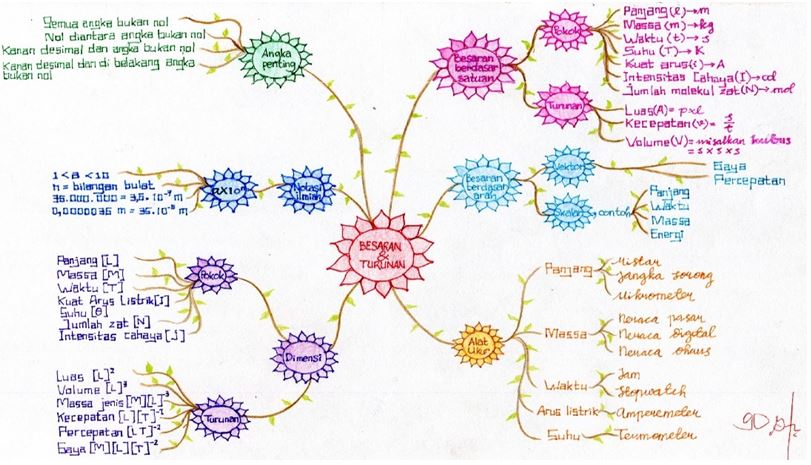 BESARAN
&
TURUNAN
Angka
penting
Semua angka bukan nol
Nol diantara angka bukan nol
Kanan desimal dan angka bukan nol
Kanan desimal dan di belakang angka
bukan nol
Besaran
berdasar
satuan
Pokok
Panjang (l) → m
Massa (m) → kg
Waktu (t) → s
Suhu (T) → K
Kuat arus (i) → A
Intensitas Cahaya (I) → cd
Jumlah molekul zat (N) → mol
Turunan
Luas (A) = pxl
Kecepatan (v) = s/t
Volume (V) = misalkan
= s x s x s
Notasi
ilmiah
ax10ⁿ
1 < a < 10
n = bilangan bulat
Besaran
berdasar
arah
Vektor
Gaya
Percepatan
Skalar, contoh
Panjang
Waktu
Massa
Energi
Dimensi
Pokok
Panjang [L]
Massa [M]
Waktu [T]
Kuat Arus Listrik [I]
Suhu [θ]
Jumlah zat [N]
Intensitas cahaya [J]
Turunan
Luas [L]²
Volume [L]³
Massa jenis [M][L]⁻³
Kecepatan [L][T]⁻¹
Percepatan [LT]⁻²
Gaya [M][L][T]⁻²
Alat
Ukur
Panjang
Mistar
Jangka sorong
Mikrometer
Massa
Neraca pasar
Neraca digital
Neraca ohaus
Waktu
Jam
Stopwatch
Arus listrik
Amperemeter
Suhu
Termometer